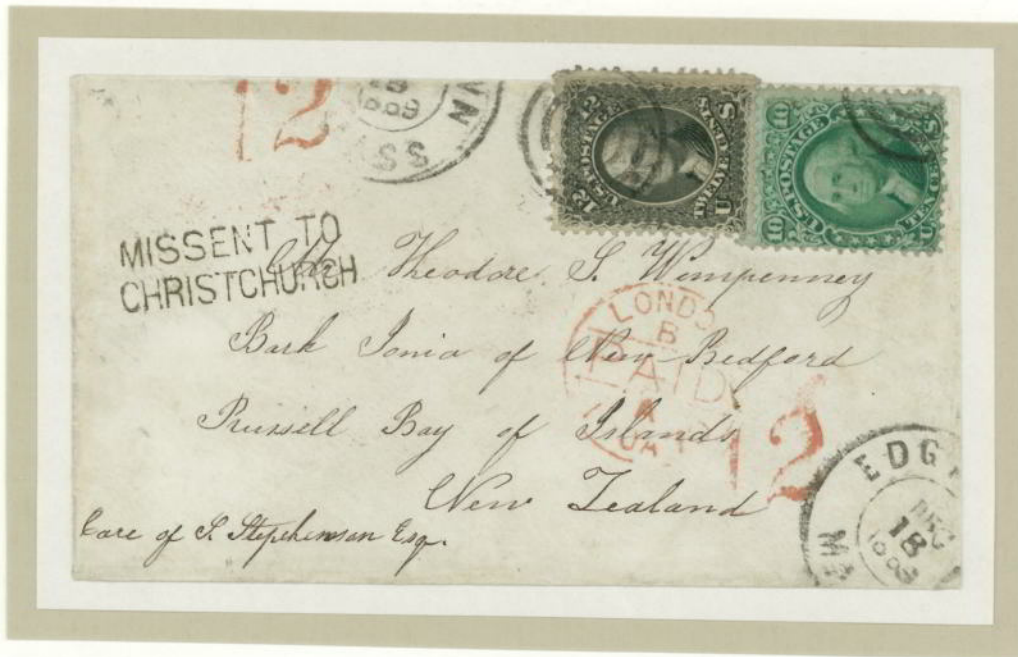 12
MISSENT TO
CHRISTCHURCH
12 U.S. POSTAGE 12 TWELVE CENTS U S
10 U.S. POSTAGE 10 TEN CENTS U S
Mr Theodore S. Wimpenney
Bark Ionia of New Bedford
Russell Bay of Islands
New Zealand
Care of S. Stephenson Esq.
LONDO
B
PAID
JA
12
EDG
DEC
18